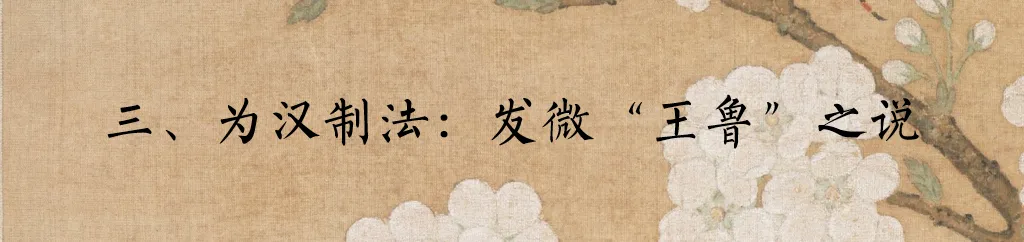 三、为汉制法：发微“王鲁”之说